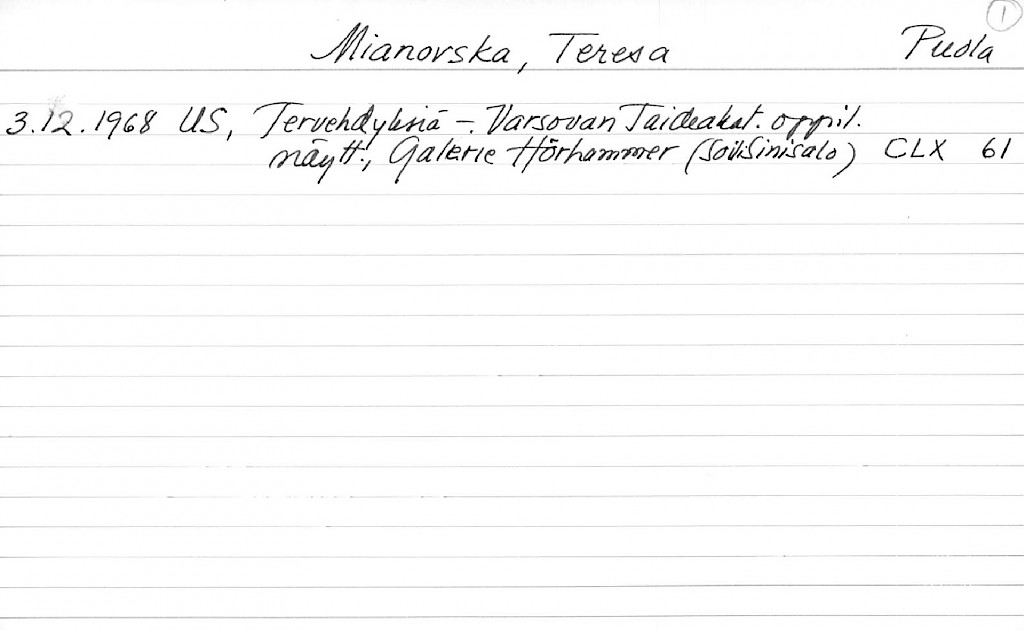 1
Mianovska, Teresa Puola
3.12.1968 US, Tervehdyksiä - Varsovan Taideakat. oppil.
näytt., Galerie Hörhammer (Soili Sinisalo) CLX 61